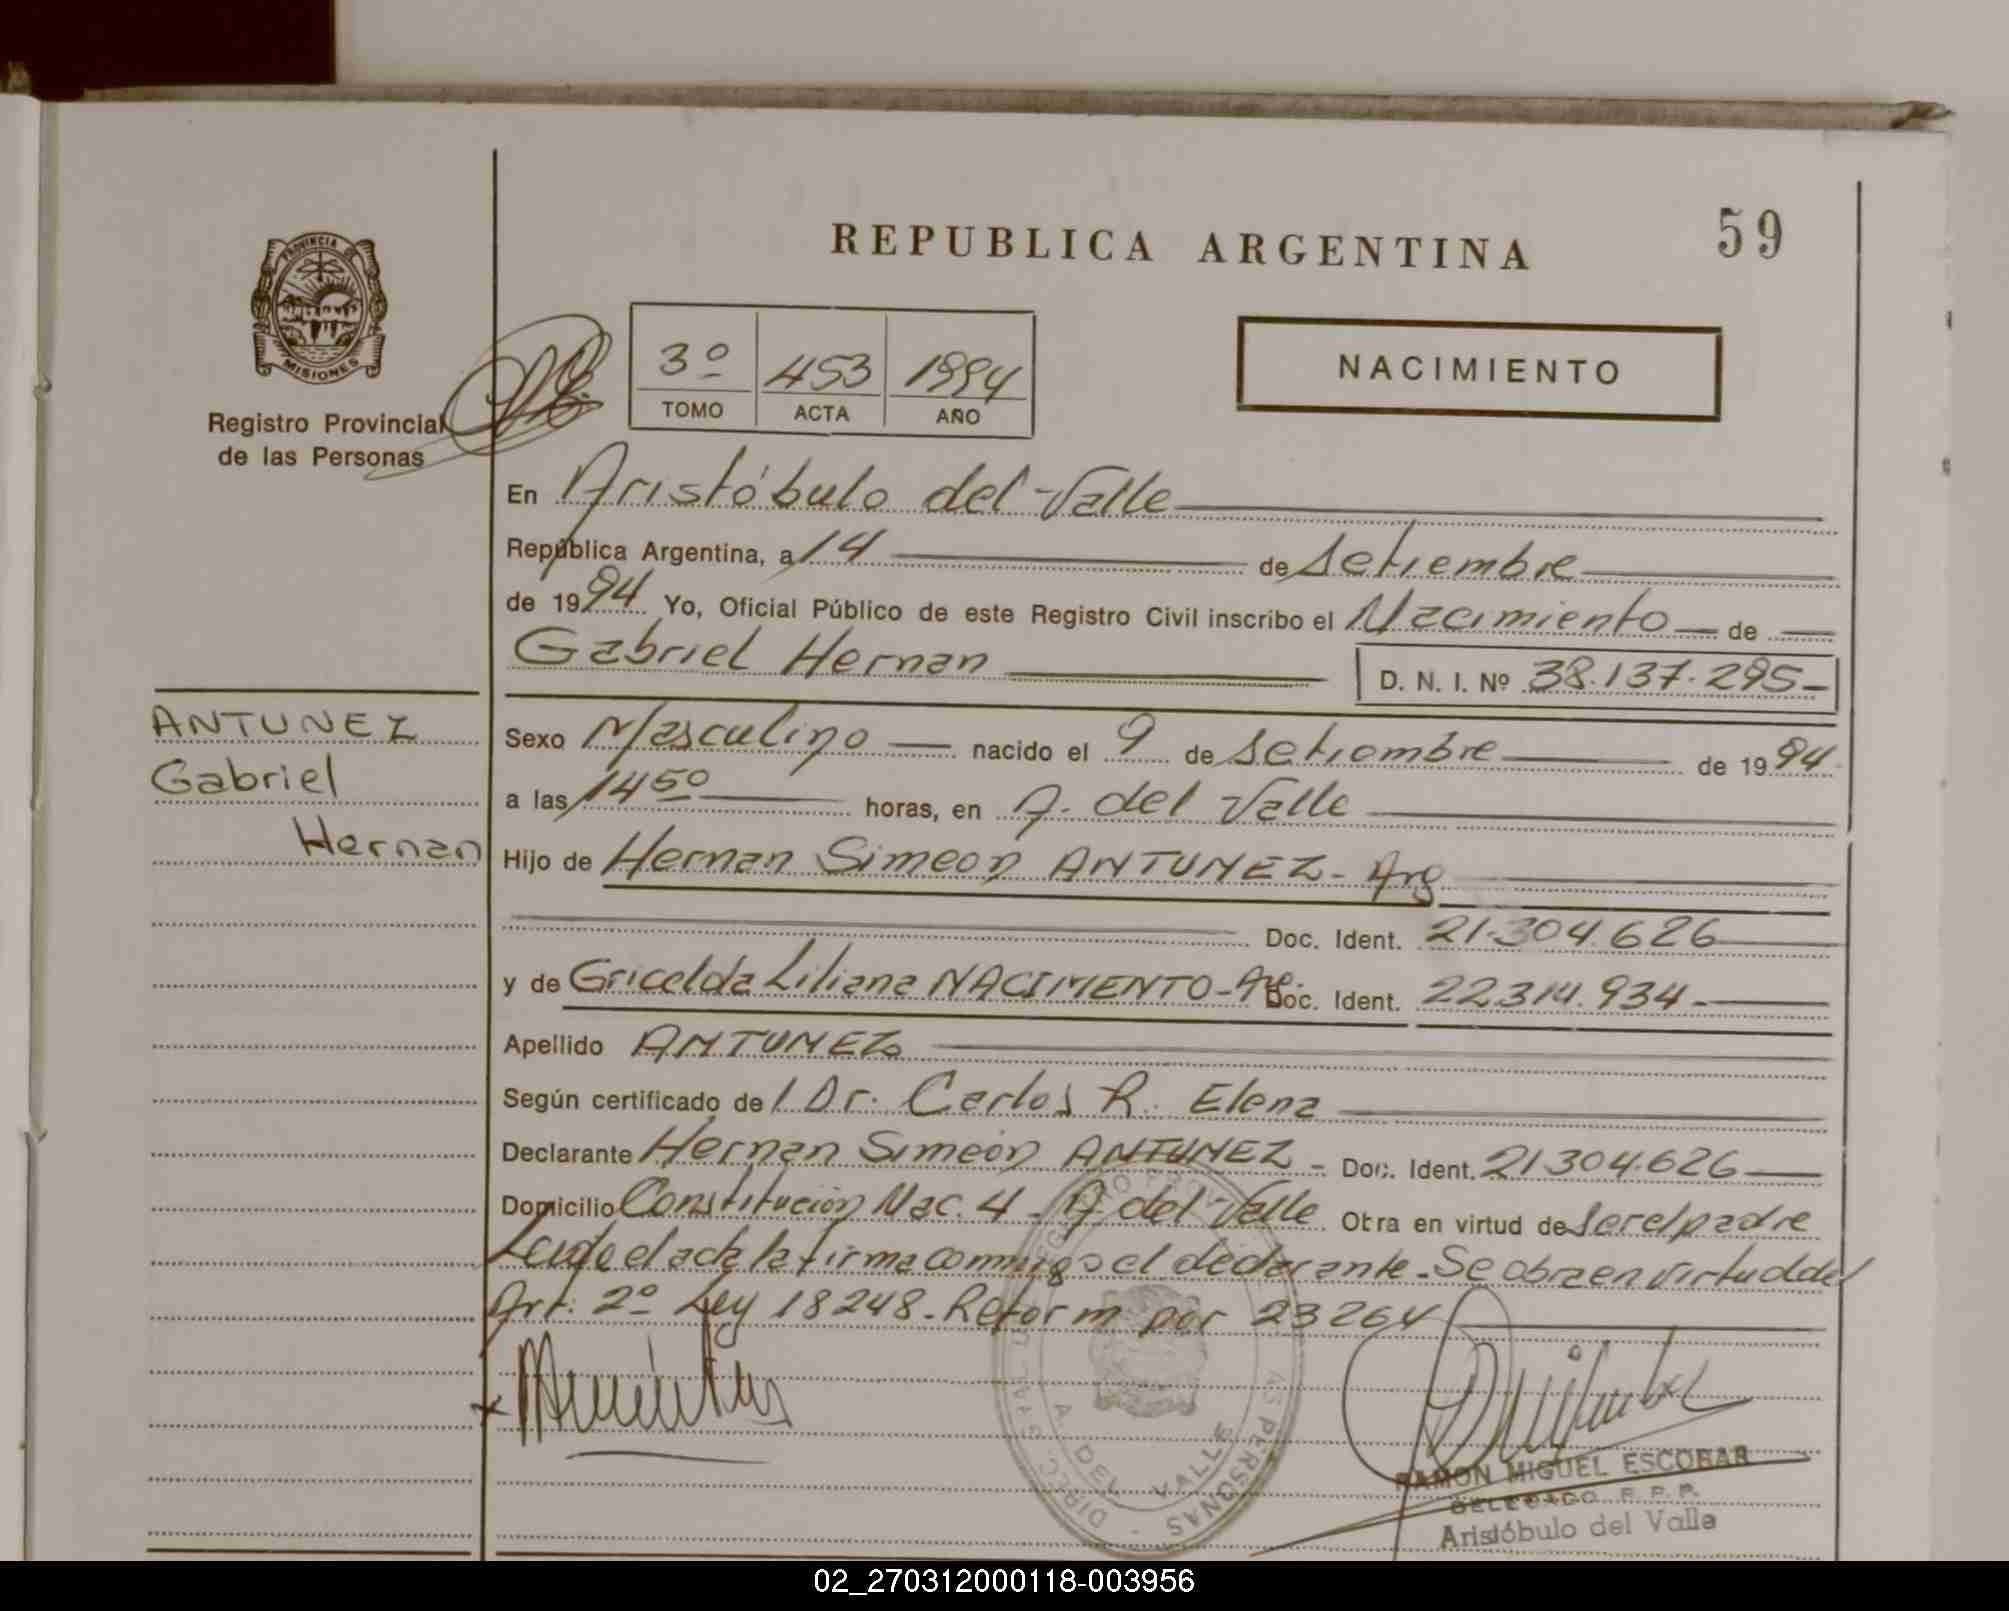 REPUBLICA ARGENTINA
59
PROVINCIA DE
MISIONES
Registro Provincial
de las Personas
3º 453 1994
TOMO ACTA AÑO
NACIMIENTO
En Aristóbulo del Valle
República Argentina, a 14 de Setiembre
de 1994 Yo, Oficial Público de este Registro Civil inscribo el Nacimiento de
Gabriel Hernan D. N. I. Nº 38.137.295-
ANTUNEZ
Gabriel
Hernan
Sexo Masculino nacido el 9 de Setiembre de 1994
a las 14 50 horas, en A. del Valle
Hijo de Hernan Simeon ANTUNEZ - Arg
Doc. Ident. 21.304.626
y de Gricelda Liliana NACIMIENTO - Arg. Doc. Ident. 22.314.934-
Apellido ANTUNEZ
Según certificado del Dr. Carlos R. Elena
Declarante Hernan Simeón ANTUNEZ - Doc. Ident. 21304.626
Domicilio Constitución Nac. 4 - A. del Valle Otra en virtud de ser el padre
Leida el acta la firma conmigo el declarante. Se obra en virtud del
Art. 2º Ley 18248. Reform por 23264
A. DEL VALLE
RAMON MIGUEL ESCOBAR
DELEGADO R. P. P.
Aristóbulo del Valle
02_270312000118-003956